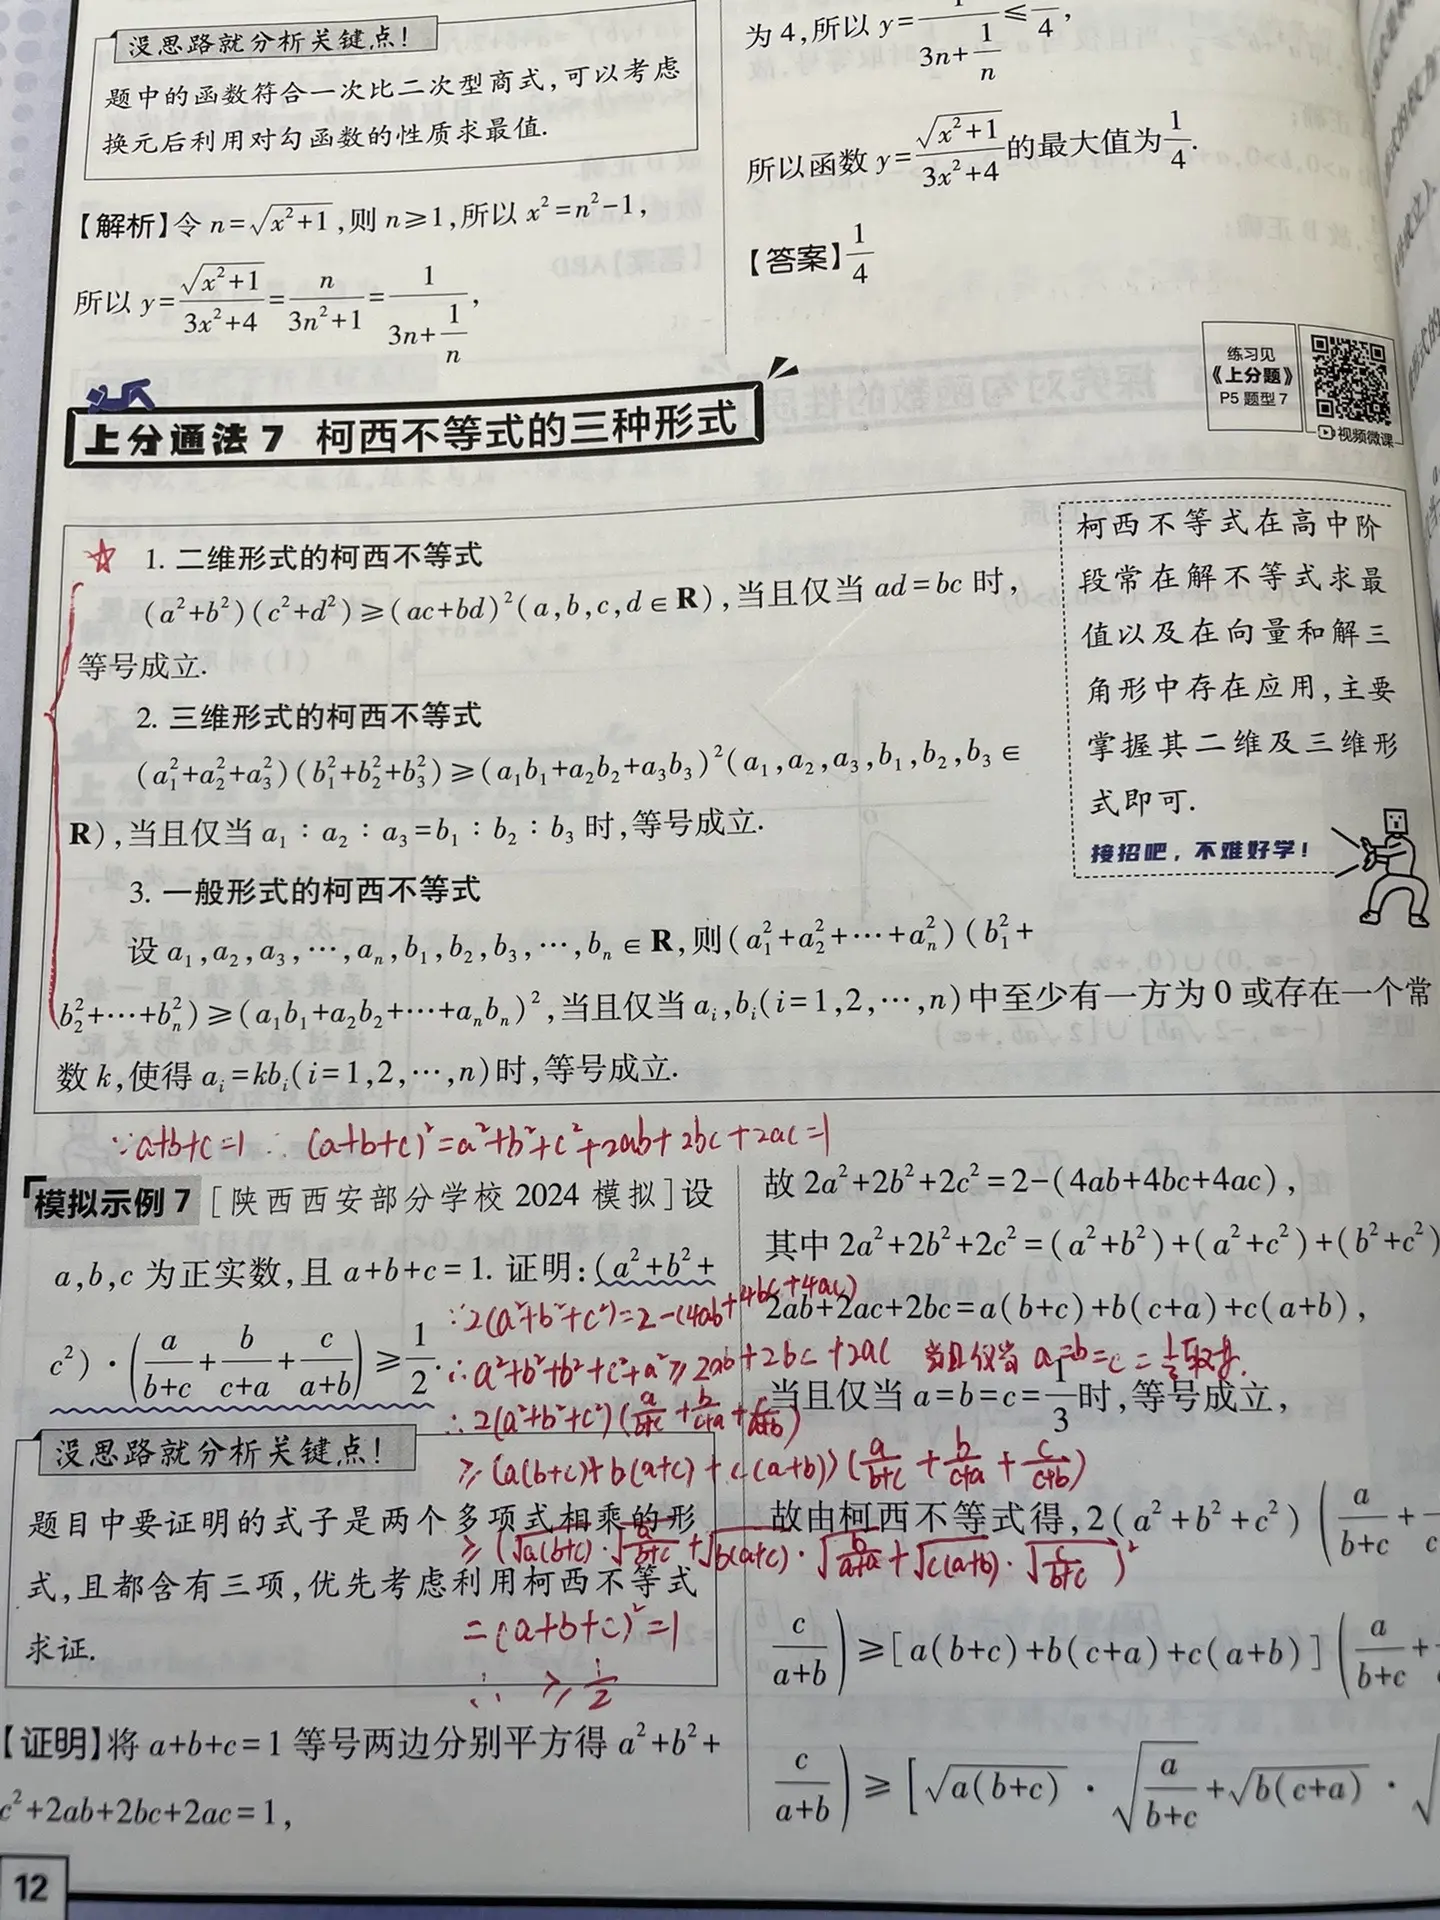 没思路就分析关键点!
题中的函数符合一次比二次型商式,可以考虑
换元后利用对勾函数的性质求最值.
【解析】令 n=√(x²+1),则 n≥1,所以 x²=n²-1,
所以 y=√(x²+1)/(3x²+4)=n/(3n²+1)=1/(3n+1/n),
为 4,所以 y=1/(3n+1/n)≤1/4,
所以函数 y=√(x²+1)/(3x²+4)的最大值为1/4.
【答案】1/4
练习见
《上分题》
P5 题型 7
视频微课
上分通法 7 柯西不等式的三种形式
☆ 1. 二维形式的柯西不等式
(a²+b²)(c²+d²)≥(ac+bd)²(a,b,c,d∈R),当且仅当 ad=bc 时,
等号成立.
2. 三维形式的柯西不等式
(a₁²+a₂²+a₃²)(b₁²+b₂²+b₃²)≥(a₁b₁+a₂b₂+a₃b₃)²(a₁,a₂,a₃,b₁,b₂,b₃∈
R),当且仅当 a₁∶a₂∶a₃=b₁∶b₂∶b₃ 时,等号成立.
3. 一般形式的柯西不等式
设 a₁,a₂,a₃,…,aₙ,b₁,b₂,b₃,…,bₙ∈R,则(a₁²+a₂²+…+aₙ²)(b₁²+
b₂²+…+bₙ²)≥(a₁b₁+a₂b₂+…+aₙbₙ)²,当且仅当 aᵢ,bᵢ(i=1,2,…,n)中至少有一方为 0 或存在一个常
数 k,使得 aᵢ=kbᵢ(i=1,2,…,n)时,等号成立.
柯西不等式在高中阶
段常在解不等式求最
值以及在向量和解三
角形中存在应用,主要
掌握其二维及三维形
式即可.
接招吧,不难好学!
∵a+b+c=1 ∴ (a+b+c)²=a²+b²+c²+2ab+2bc+2ac=1
模拟示例 7 [陕西西安部分学校 2024 模拟]设
a,b,c 为正实数,且 a+b+c=1. 证明:(a²+b²+
c²)·(a/(b+c)+b/(c+a)+c/(a+b))≥1/2.
∵2(a²+b²+c²)=2-(4ab+4bc+4ac)
∴a²+b²+b²+c²+c²+a²≥2ab+2bc+2ac 当且仅当 a=b=c=1/3取等.
∴2(a²+b²+c²)(a/(b+c)+b/(c+a)+c/(a+b))
≥(a(b+c)+b(a+c)+c(a+b))(a/(b+c)+b/(c+a)+c/(c+b))
=(a+b+c)²=1
∴ ≥1/2
没思路就分析关键点!
题目中要证明的式子是两个多项式相乘的形
式,且都含有三项,优先考虑利用柯西不等式
求证.
【证明】将 a+b+c=1 等号两边分别平方得 a²+b²+
c²+2ab+2bc+2ac=1,
故 2a²+2b²+2c²=2-(4ab+4bc+4ac),
其中 2a²+2b²+2c²=(a²+b²)+(a²+c²)+(b²+c²)
2ab+2ac+2bc=a(b+c)+b(c+a)+c(a+b),
当且仅当 a=b=c=1/3时,等号成立,
故由柯西不等式得,2(a²+b²+c²)(a/(b+c)+
c/(a+b))≥[a(b+c)+b(c+a)+c(a+b)](a/(b+c)+
c/(a+b))≥[√(a(b+c))·√(a/(b+c))+√(b(c+a))·
12